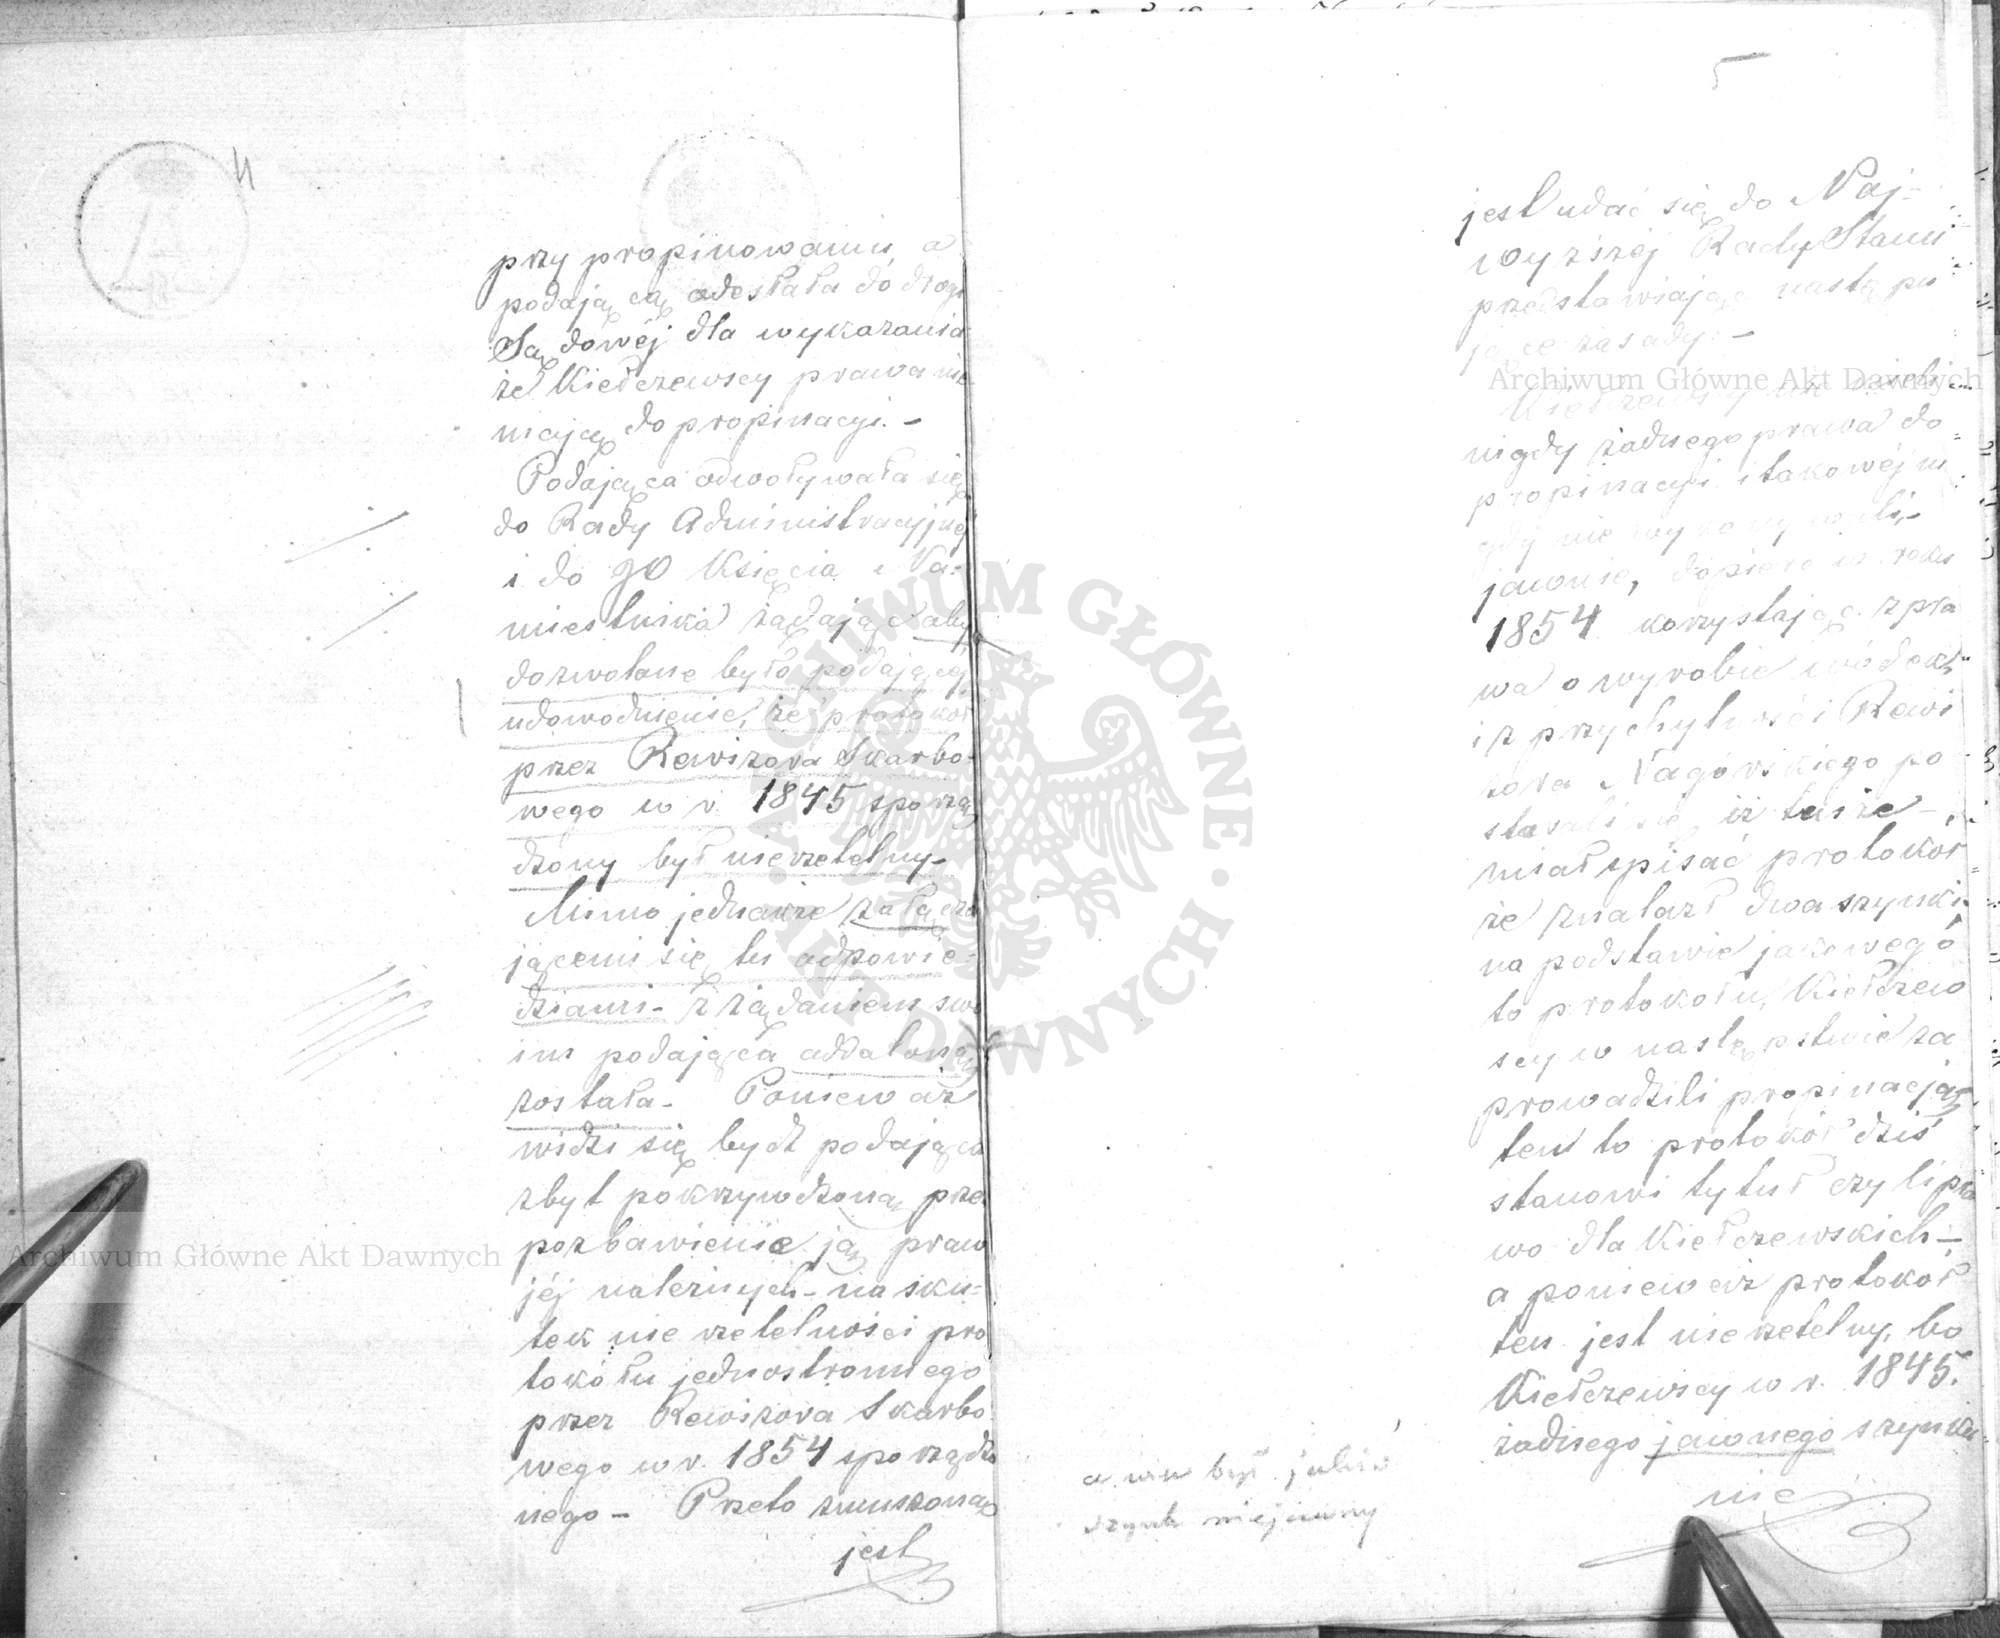 4
przy propinowaniu, a
podającą odesłała do drogi
Sądowéj dla wykazania
że Kiełczewscy prawa nie
mają do propinacyi. –
Podająca odwoływała się
do Rady Administracyjnéj
i do JO Księcia Na-
miestnika żądając aby
dozwolane było podającéj
udowodnienie, że protokół
przez Rewizora Skarbo-
wego w r. 1845 sporzą
dzony był nierzetelny –
Mimo jednakże załącza
jącemi się tu odpowie-
dziami – z żądaniem swo
im podająca oddaloną
została – Ponieważ
widzi się bydź podająca
zbyt pokrzywdzoną przez
pozbawienie ją praw
jéj należnych – na sku-
tek nierzetelności pro
tokółu jednostronnego
przez Rewizora Skarbo
wego w r. 1854 sporządzo
nego – Przeto zmuszoną
jest
5
jest udać się do Naj-
wyższéj Rady Stanu
przedstawiając nastę pu
jące zasady. –
Kiełczewscy nie mieli
nigdy żadnego prawa do
propinacyi i takowéj ni
gdy nie wykonywali –
jawnie, dopiero w roku
1854 korzystając z pra
wa o wyrobie wódek
i z przychylności Rewi
zora Nagórskiego po
starali się iż tenże –
miał spisać protokół
że znalazł dwa szynki
na podstawie jakowego
to protokołu, Kiełczew
scy w następstwie za
prowadzili propinacją
ten to protokół dziś
stanowi tytuł czyli pra
wo dla Kiełczewskich –
a ponieważ protokół
ten jest nierzetelny, bo
Kiełczewscy w r. 1845.
żadnego jawnego szynku
nie
szynk niejawny
Archiwum Główne Akt Dawnych
Archiwum Główne Akt Dawnych
ARCHIWUM GŁÓWNE · AKT DAWNYCH ·